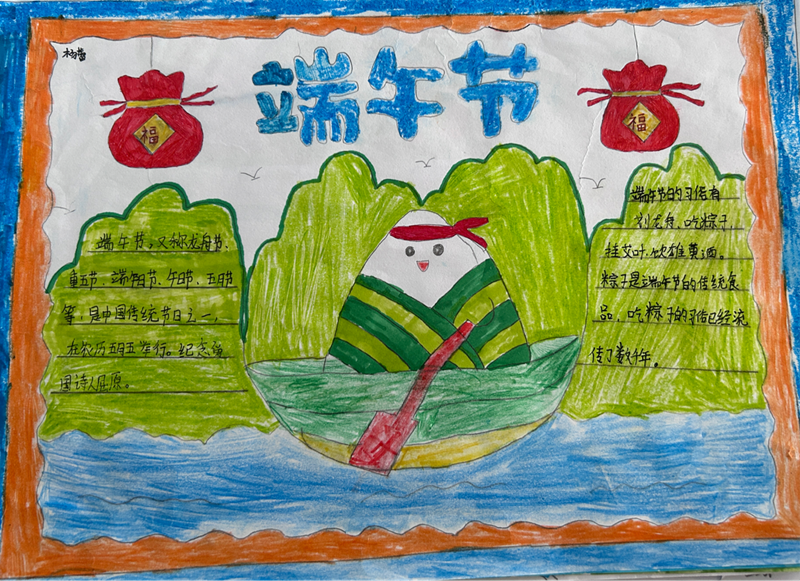 端午节
福
福
端午节,又称龙舟节、
重五节、端阳节、午日节、五月节
等,是中国传统节日之一,
在农历五月五举行。纪念爱
国诗人屈原。
端午节的习俗有
划龙舟、吃粽子、
挂艾叶、饮雄黄酒。
粽子是端午节的传统食
品,吃粽子的习俗已经流
传了数千年。